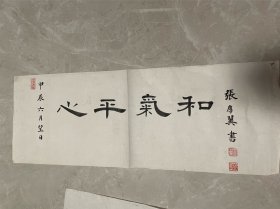 甲辰六月日
心平氣和
張書